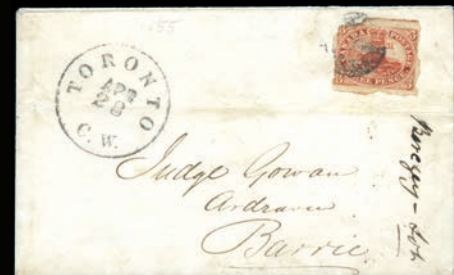 55
TORONTO
APR
28
C.W.
CANADA POSTAGE
THREE PENCE
Judge Gowan
Ardraven
Barrie